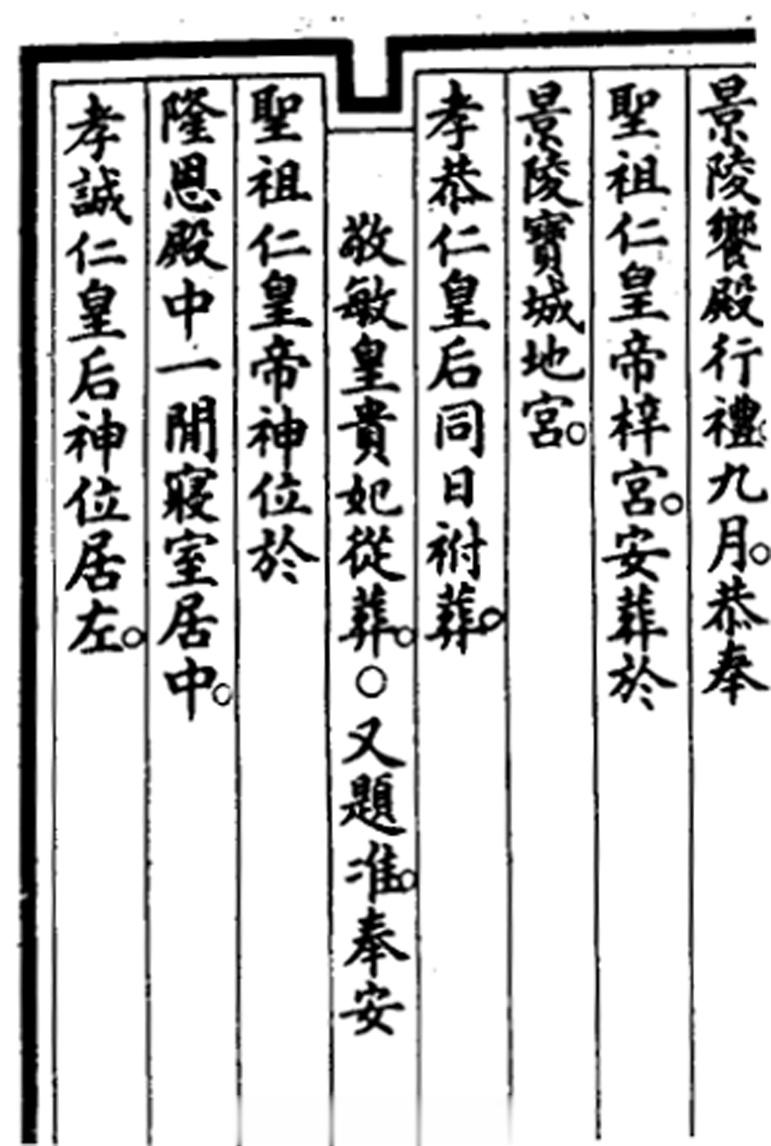 景陵饗殿行禮。九月。恭奉
聖祖仁皇帝梓宮。安葬於
景陵寶城地宮。
孝恭仁皇后同日祔葬。
敬敏皇貴妃從葬。○又題准。奉安
聖祖仁皇帝神位於
隆恩殿中一閒寢室居中。
孝誠仁皇后神位居左。